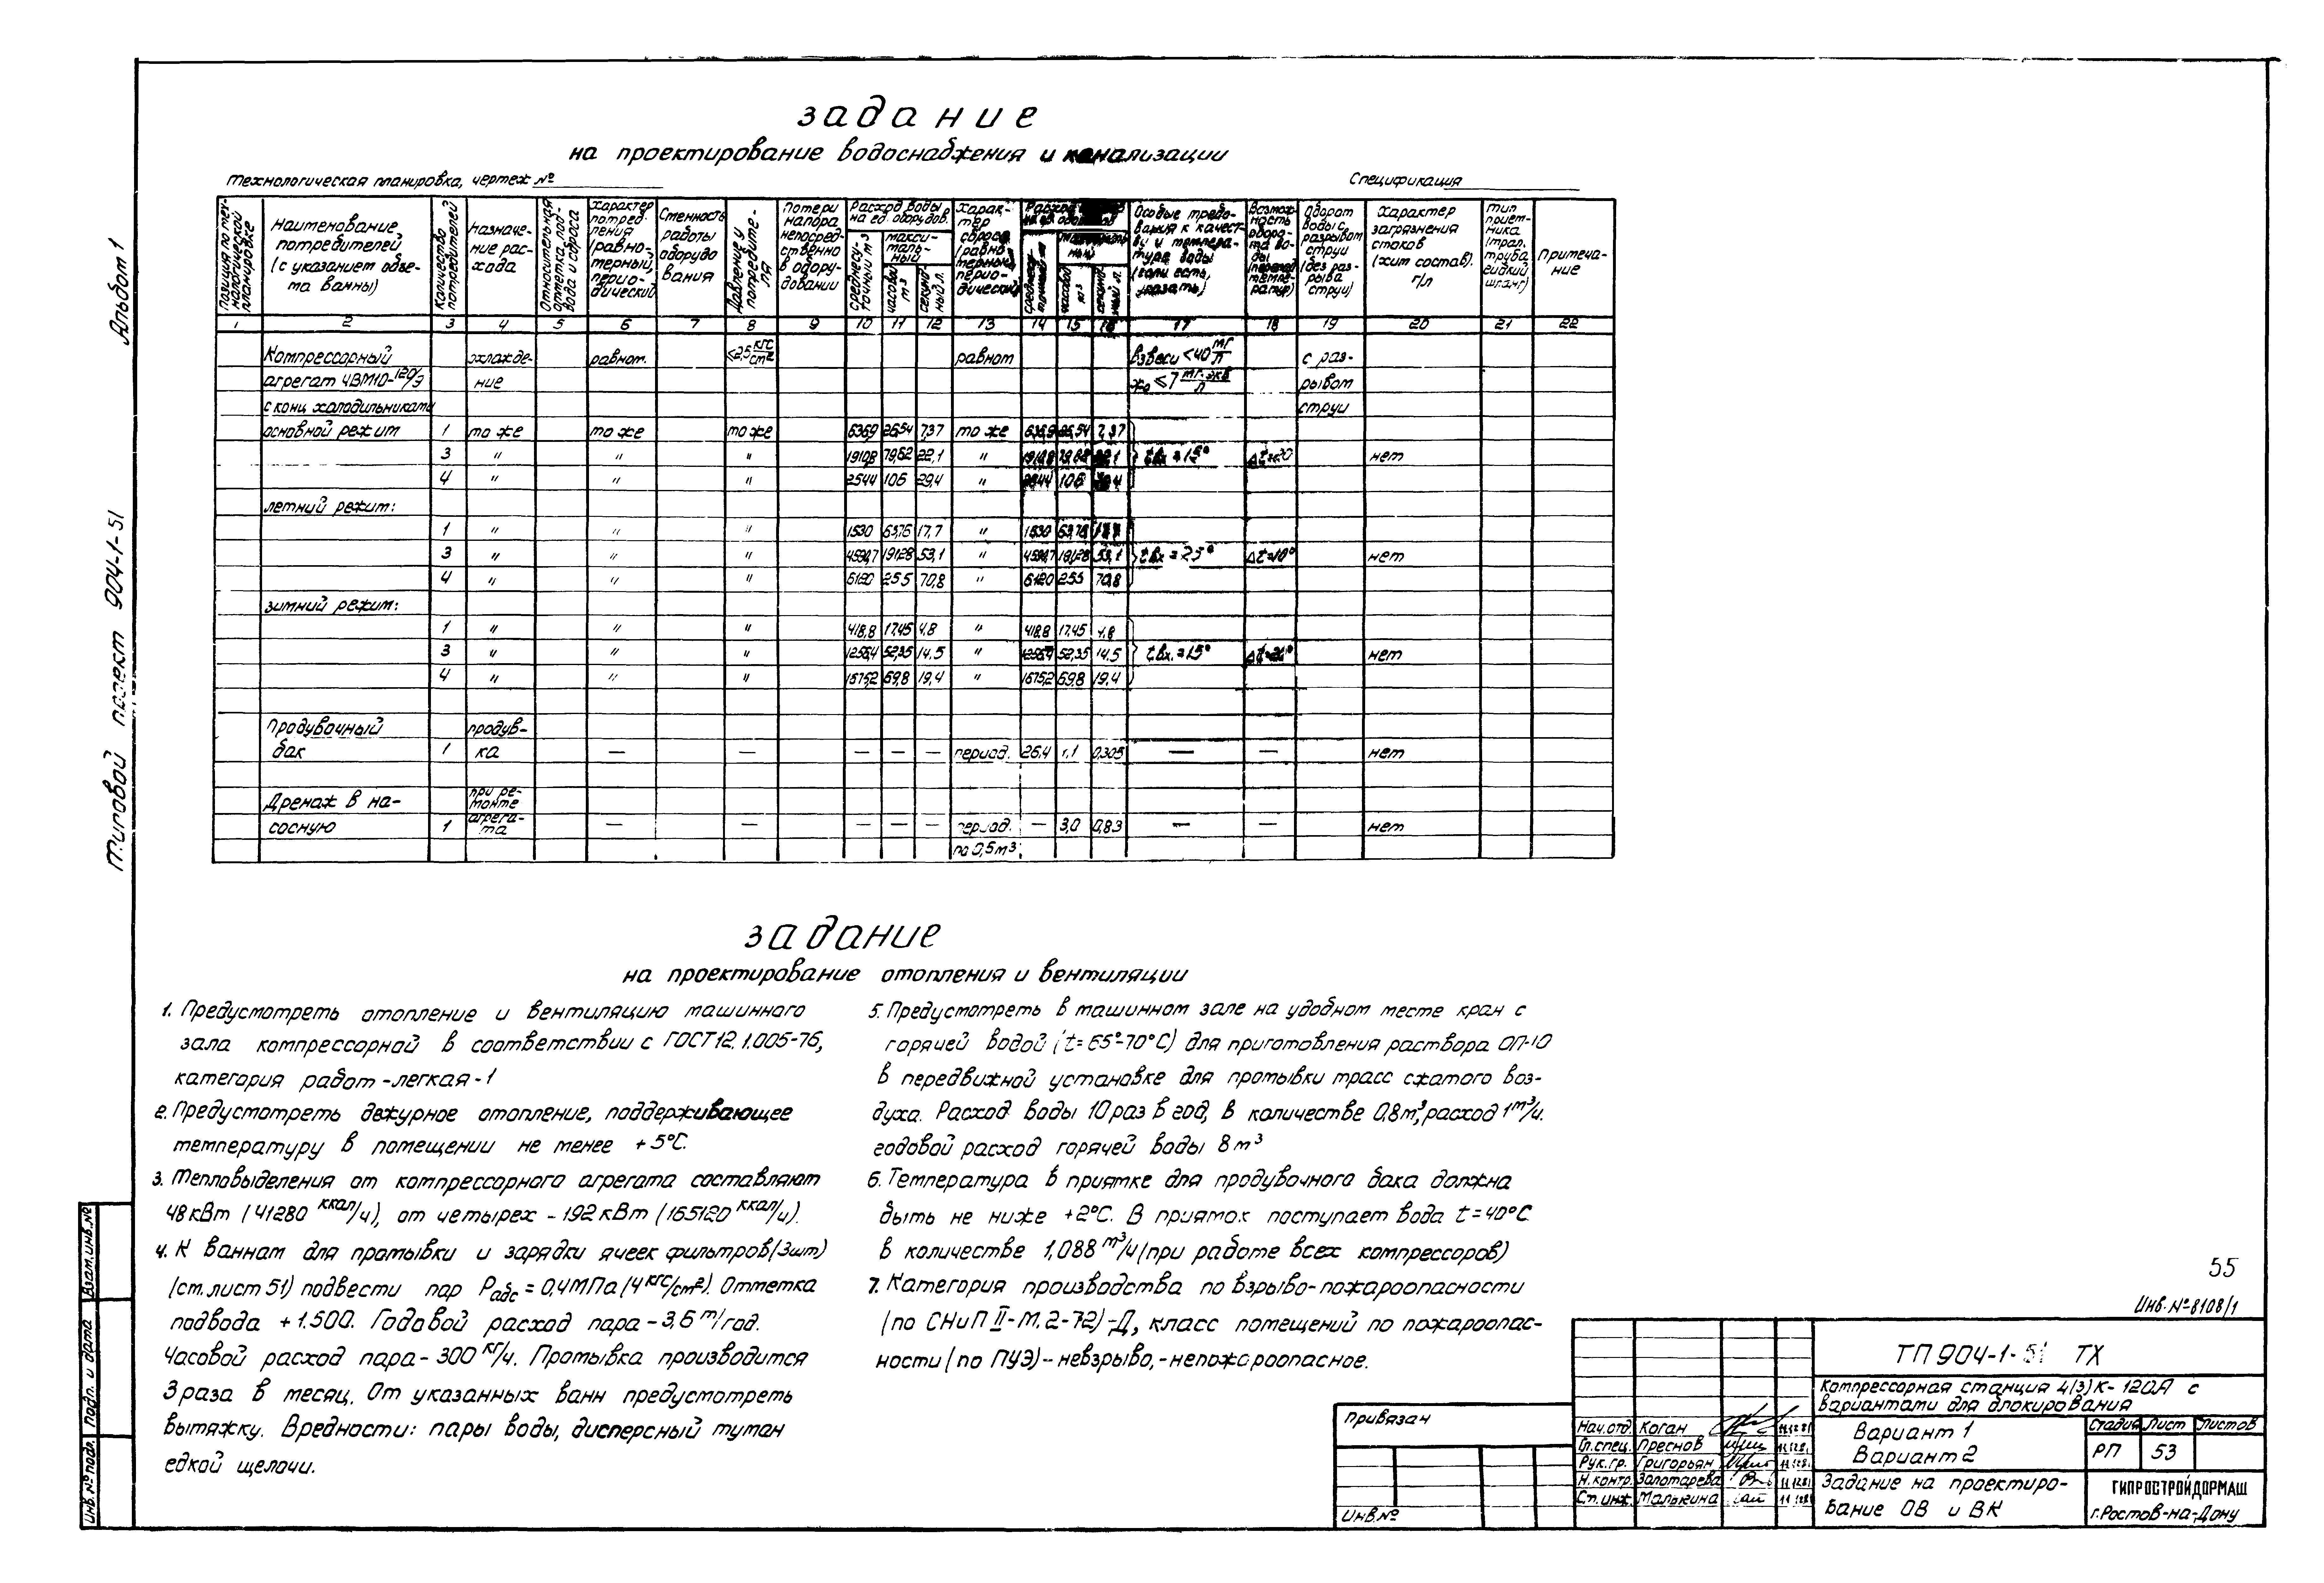 Альбом 1
Типовой проект 904-1-51
задание
на проектирование водоснабжения и канализации
Технологическая планировка, чертеж №
Спецификация
Позиция по технологической планировке
Наименование потребителей (с указанием объема ванны)
Количество потребителей
Назначение расхода
Относительная отметка подвода и сброса
Характер потребления (равномерный, периодический)
Сменность работы оборудования
Давление у потребителя
Потери напора непосредственно в оборудовании
Расход воды на ед. оборудов.
среднесуточный м³
максимальный
часовой м³
секундный л.
Характер сброса (равномерный, периодический)
Особые требования к качеству и температуре воды (если есть, указать)
Возможность оборота воды (перепад температур)
Оборот воды с разрывом струи (без разрыва струи)
Характер загрязнения стоков (хим состав). г/л
Тип приемника (трап, труба, гибкий шланг)
Примечание
1 2 3 4 5 6 7 8 9 10 11 12 13 14 15 16 17 18 19 20 21 22
Компрессорный охлажде- равном. ≤2,5 кгс/см² равном взвеси <40 мг/л с раз-
агрегат 4ВМ10-120/9 ние ж₀ ≤7 мг.экв/л рывом
с конц холодильниками струи
основной режим 1 то же то же то же 636,9 26,54 7,37 то же 636,9 26,54 7,37
3 " " " 1910,8 79,62 22,1 " 1910,8 79,62 22,1 tвх = 15° Δt=20 нет
4 " " " 2544 106 29,4 " 2544 106 29,4
летний режим:
1 " " " 1530 63,76 17,7 " 1530 63,76 17,7
3 " " " 4590,7 191,28 53,1 " 4590,7 191,28 53,1 tвх = 25° Δt=10° нет
4 " " " 6120 255 70,8 " 6120 255 70,8
зимний режим:
1 " " " 418,8 17,45 4,8 " 418,8 17,45 4,8
3 " " " 1256,4 52,35 14,5 " 1256,4 52,35 14,5 tвх. = 15° нет
4 " " " 1675,2 69,8 19,4 " 1675,2 69,8 19,4
Продувочный продув-
бак 1 ка — — — — — период. 26,4 1,1 0,305 — — нет
Дренаж в на- при ремонте
сосную 1 агрегата — — — — — период. — 3,0 0,83 — — нет
по 0,5м³
задание
на проектирование отопления и вентиляции
1. Предусмотреть отопление и вентиляцию машинного
зала компрессорной в соответствии с ГОСТ 12.1.005-76,
категория работ - легкая - 1
2. Предусмотреть дежурное отопление, поддерживающее
температуру в помещении не менее +5°С.
3. Тепловыделения от компрессорного агрегата составляют
48 кВт (41280 ккал/ч), от четырех - 192 кВт (165120 ккал/ч).
4. К ваннам для промывки и зарядки ячеек фильтров (3шт)
(см. лист 51) подвести пар Рабс = 0,4МПа (4 кгс/см²). Отметка
подвода +1.500. Годовой расход пара - 3,6 т/год.
Часовой расход пара - 300 кг/ч. Промывка производится
3 раза в месяц. От указанных ванн предусмотреть
вытяжку. Вредности: пары воды, дисперсный туман
едкой щелочи.
5. Предусмотреть в машинном зале на удобном месте кран с
горячей водой (t = 65°-70°С) для приготовления раствора ОП-10
в передвижной установке для промывки трасс сжатого воз-
духа. Расход воды 10 раз в год, в количестве 0,8м³, расход 1 м³/ч.
годовой расход горячей воды 8 м³
6. Температура в приямке для продувочного бака должна
быть не ниже +2°С. В приямок поступает вода t = 40°С
в количестве 1,088 м³/ч (при работе всех компрессоров)
7. Категория производства по взрыво-пожароопасности
(по СНиП II-М.2-72) - Д, класс помещений по пожароопас-
ности (по ПУЭ) - невзрыво, - непожароопасное.
55
Инв. № 8108/1
Взам.инв.№
Подп. и дата
Инв.№ подл.
Привязан
Инв.№
Нач.отд. Коган
Гл.спец. Преснов
Рук.гр. Григорьян
Н.контр. Золотарева
Ст.инж. Малыгина
ТП 904-1-51 ТХ
Компрессорная станция 4(3)К-120А с
вариантами для блокирования
Вариант 1
Вариант 2
Стадия Лист Листов
РП 53
Задание на проектиро-
вание ОВ и ВК
ГИПРОСТРОЙДОРМАШ
г.Ростов-на-Дону